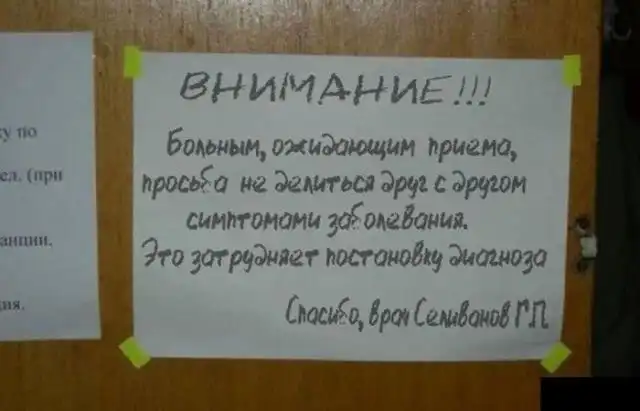 ВНИМАНИЕ!!!
Больным, ожидающим приема,
просьба не делиться друг с другом
симптомами заболевания.
Это затрудняет постановку диагноза
Спасибо, врач Селиванов Г.П.
по
(при